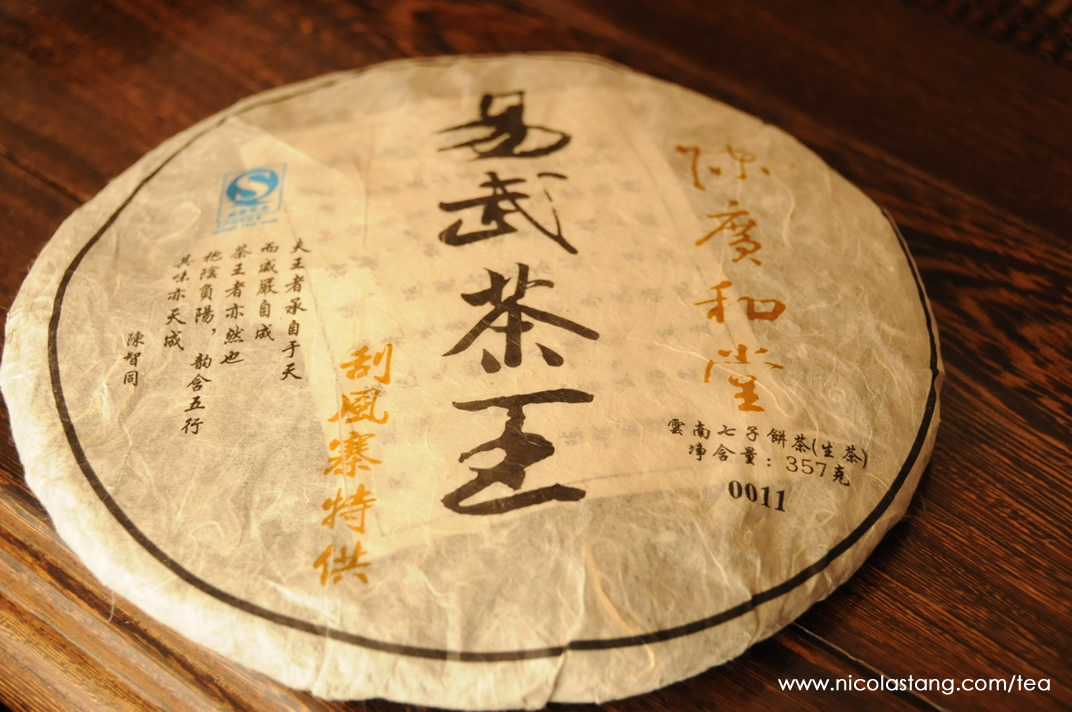 陳廣和堂
雲南七子餅茶(生茶)
净含量：357克
0011
易武茶王
刮風寨特供
夫王者承自于天
而威嚴自成
茶王者亦然也
抱陰負陽，韵含五行
其味亦天成
陳智同
www.nicolastang.com/tea